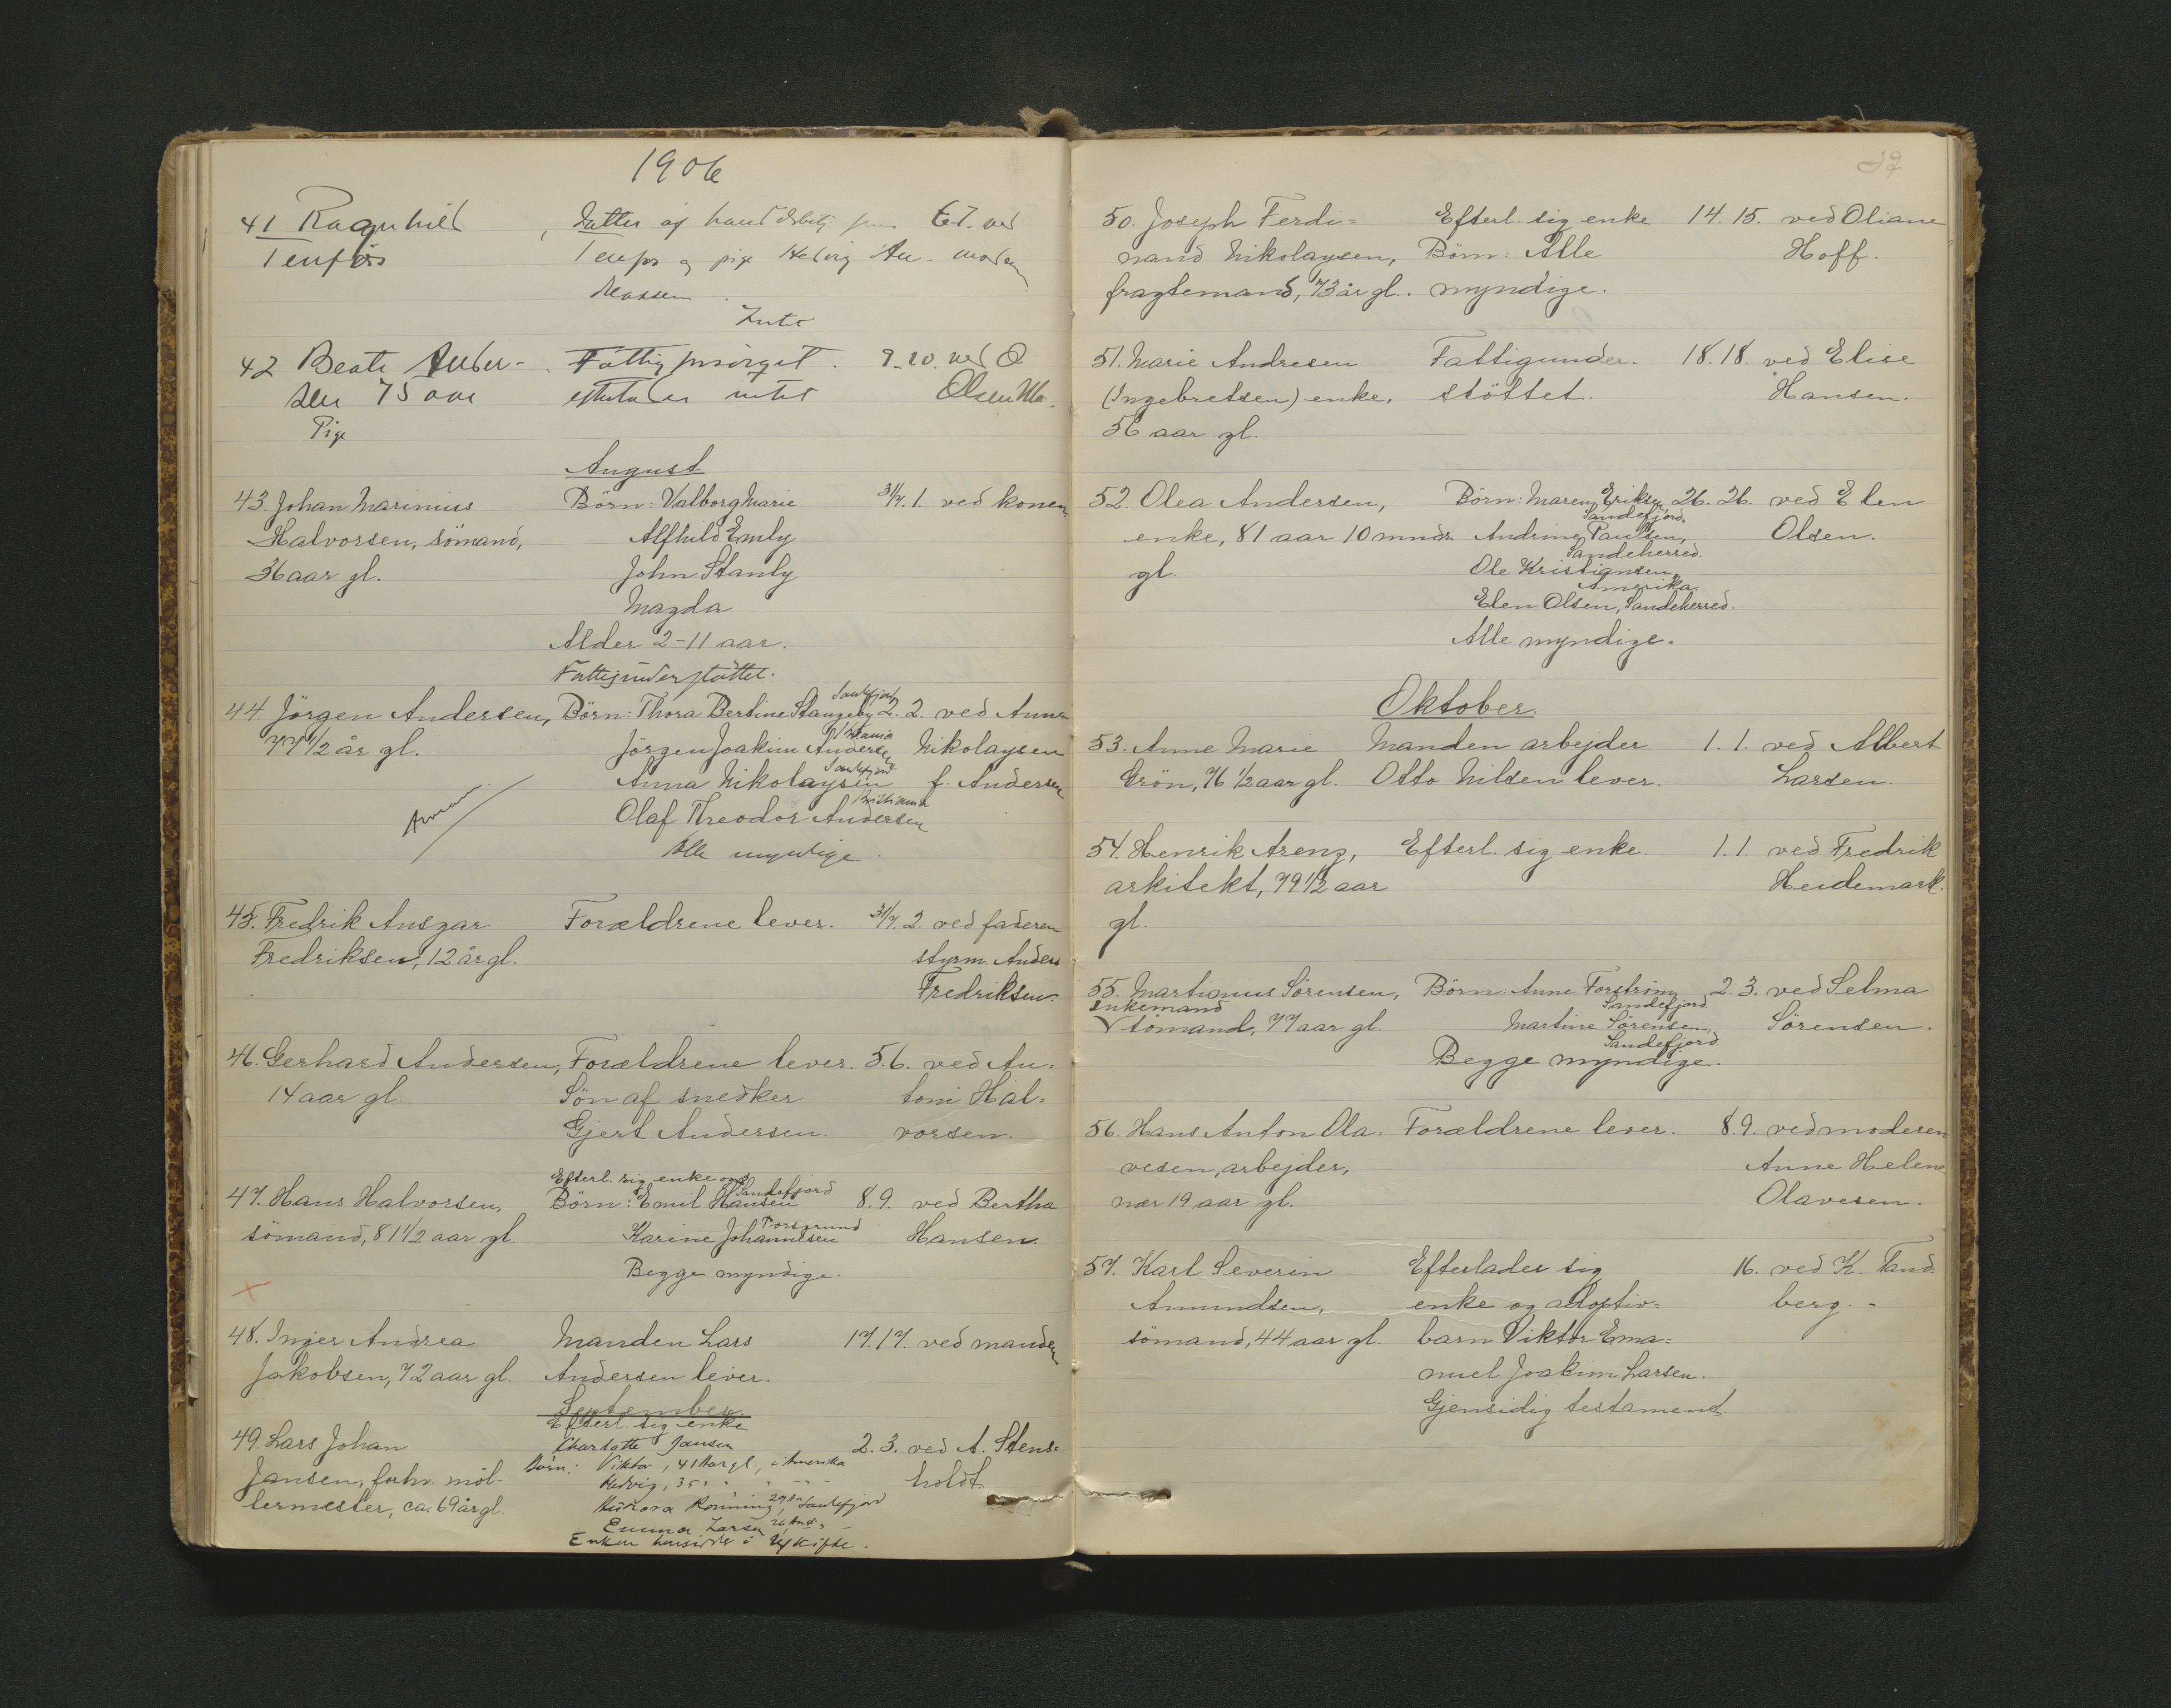 1906
41 Ragnhild , datter af
Tenfjös Tenfjos og pige Hedvig An- moderen
Intet
42 Beate Ander- Fattigforsörget. 9.10. ved O
sen 75 aar efterlader intet Olsen
Pige
August
43. Johan Marinius Börn: Valborg Marie 31/7. 1. ved konen
Halvorsen, sömand, Alfhild Emly
36 aar gl. John Stanly
Magda
Alder 2-11 aar.
Fattigunderstöttet.
Sandefjord
44. Jörgen Andersen, Börn: Thora Bertine Stangeby 2. 2. ved Anna
Kristiania
77 1/2 år gl. Jörgen Joakim Andersen Nikolaysen
Sandefjord
Anna Nikolaysen f. Andersen
Kristiania
Olaf Theodor Andersen
Alle myndige.
45. Fredrik Ansgar Forældrene lever. 31/7. 2. ved faderen
Fredriksen, 12 år gl. styrm. Anders
Fredriksen.
46. Gerhard Andersen, Forældrene lever. 5.6. ved An=
14 aar gl. Sön af snedker toni Hal=
Gjert Andersen. vorsen.
Efterl. sig enke og
Sandefjord
47. Hans Halvorsen, Börn: Emil Hansen 8.9. ved Bertha
Porsgrund
sömand, 81 1/2 aar gl. Karine Johannesen Hansen.
Begge myndige.
48. Inger Andrea Manden Lars 17.17. ved manden
Jakobsen, 72 aar gl. Andersen lever.
September
Efterl. sig enke
49. Lars Johan Charlotte Jansen 2.3. ved A. Stens=
Jansen, forhv. möl- Börn: Viktor, 41 Aar gl., i Amerika holdt
Hedvig, 35 " " " - " -
lermester, ca. 69 år gl. Rönning, Sandefjord
Emma Larsen
Enken hensidder i Uskifte.
39
50. Joseph Ferdi= Efterl. sig enke 14. 15. ved Oliane
nand Nikolaysen, Börn: Alle Hoff.
fragtemand, 73 år gl.. myndige.
51. Marie Andresen Fattigunder- 18. 18. ved Elise
(Ingebretsen) enke, stöttet. Hansen.
56 aar gl.
52. Olea Andersen, Börn: Maren Eriksen, 26. 26. ved Elen
Sandefjord.
enke, 81 aar 10 mndr. Andrine Paulsen, Olsen.
Sandeherred.
gl. Ole Kristiansen,
Amerika.
Elen Olsen, Sandeherred.
Alle myndige.
Oktober.
53. Anne Marie Manden arbejder 1. 1. ved Albert
Grön, 76 1/2 aar gl. Otto Nilsen lever. Larsen.
54. Henrik Areng, Efterl. sig enke. 1. 1. ved Fredrik
arkitekt, 79 1/2 aar Heidemark.
gl.
55. Martinius Sörensen, Börn: Anne Forström, 2. 3. ved Selma
Enkemand Sandefjord.
V sömand, 77 aar gl. Martine Sörensen, Sörensen.
Sandefjord.
Begge myndige.
56. Hans Anton Ola= Forældrene lever. 8.9. ved moderen
vesen, arbejder, Anne Helene
nær 19 aar gl. Olavesen.
57. Karl Severin Efterlader sig 16. ved K. Tand=
Amundsen, enke og adoptiv= berg.-
sömand, 44 aar gl. barn Viktor Ema=
nuel Joakim Larsen.
Gjensidig testament.